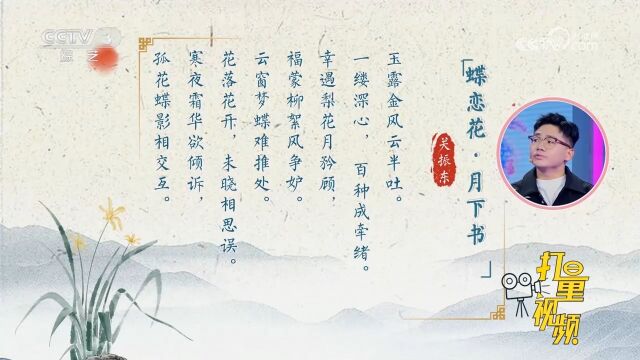 CCTV 3
综艺
CCTV.com
「蝶恋花·月下书」
关振东
玉露金风云半吐。
一缕深心，百种成牵绪。
幸遇梨花月矜顾，
福蒙柳絮风争妒。
云窗梦蝶难推处。
花落花开，未晓相思误。
寒夜霜华欲倾诉，
孤花蝶影相交互。
打量视频